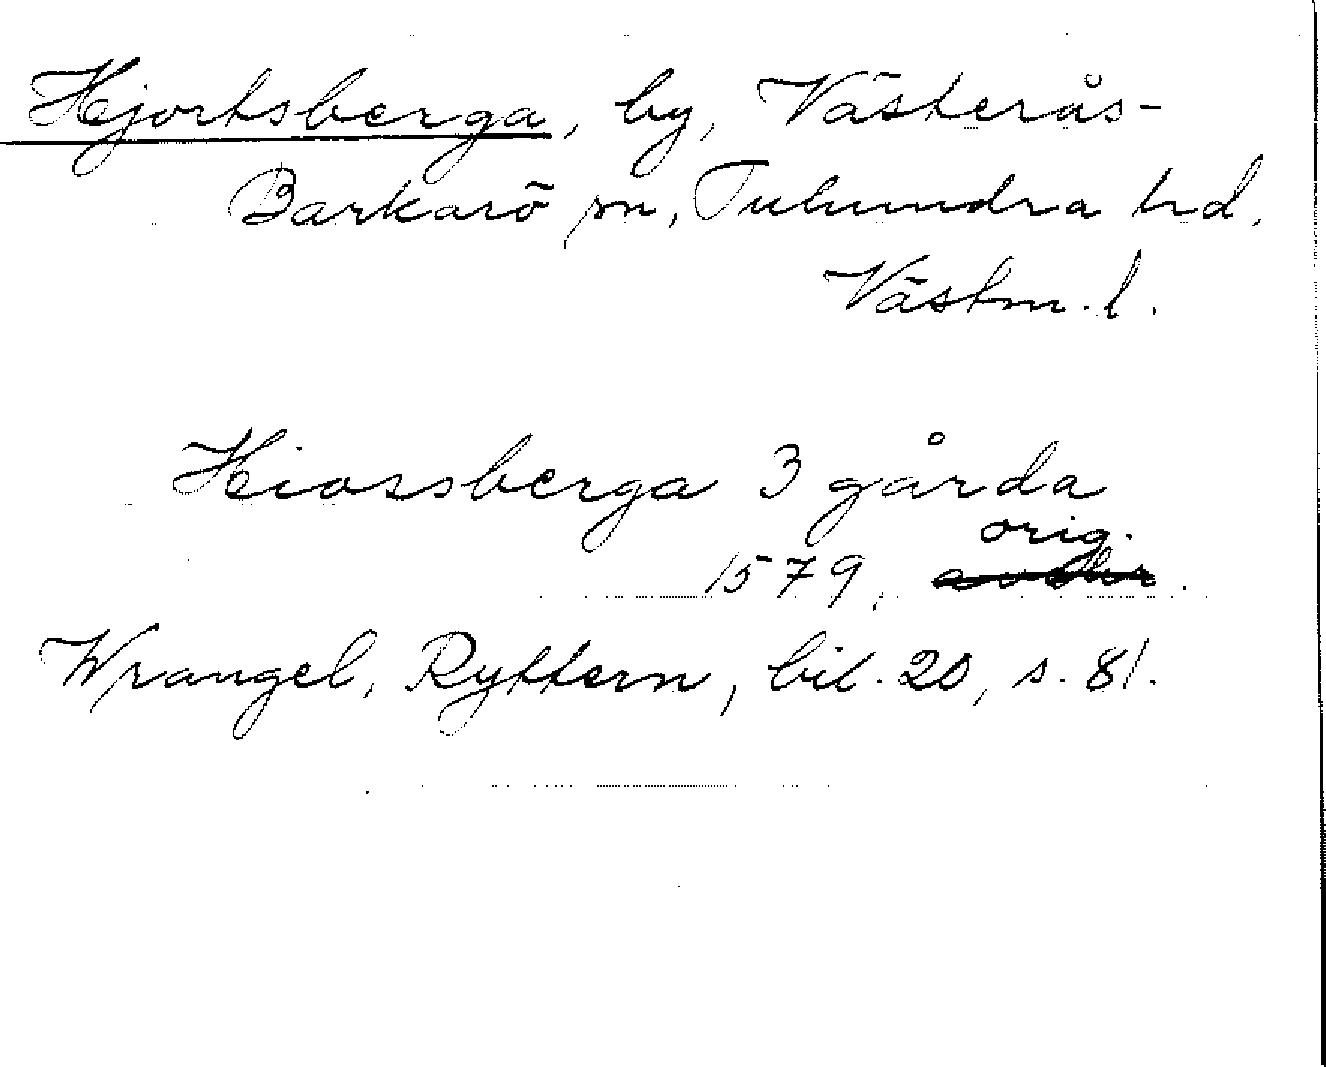 Hjortsberga, by, Västerås-
Barkarö sn, Tuhundra hd.
Västm. l.
Hiorssberga 3 gårda
orig.
1579, avskr.
Wrangel, Ryttern, bil. 20, s. 81.